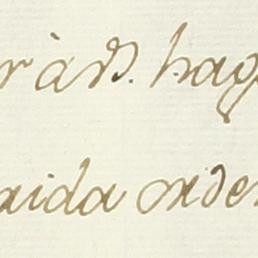 r à hag
aida orden